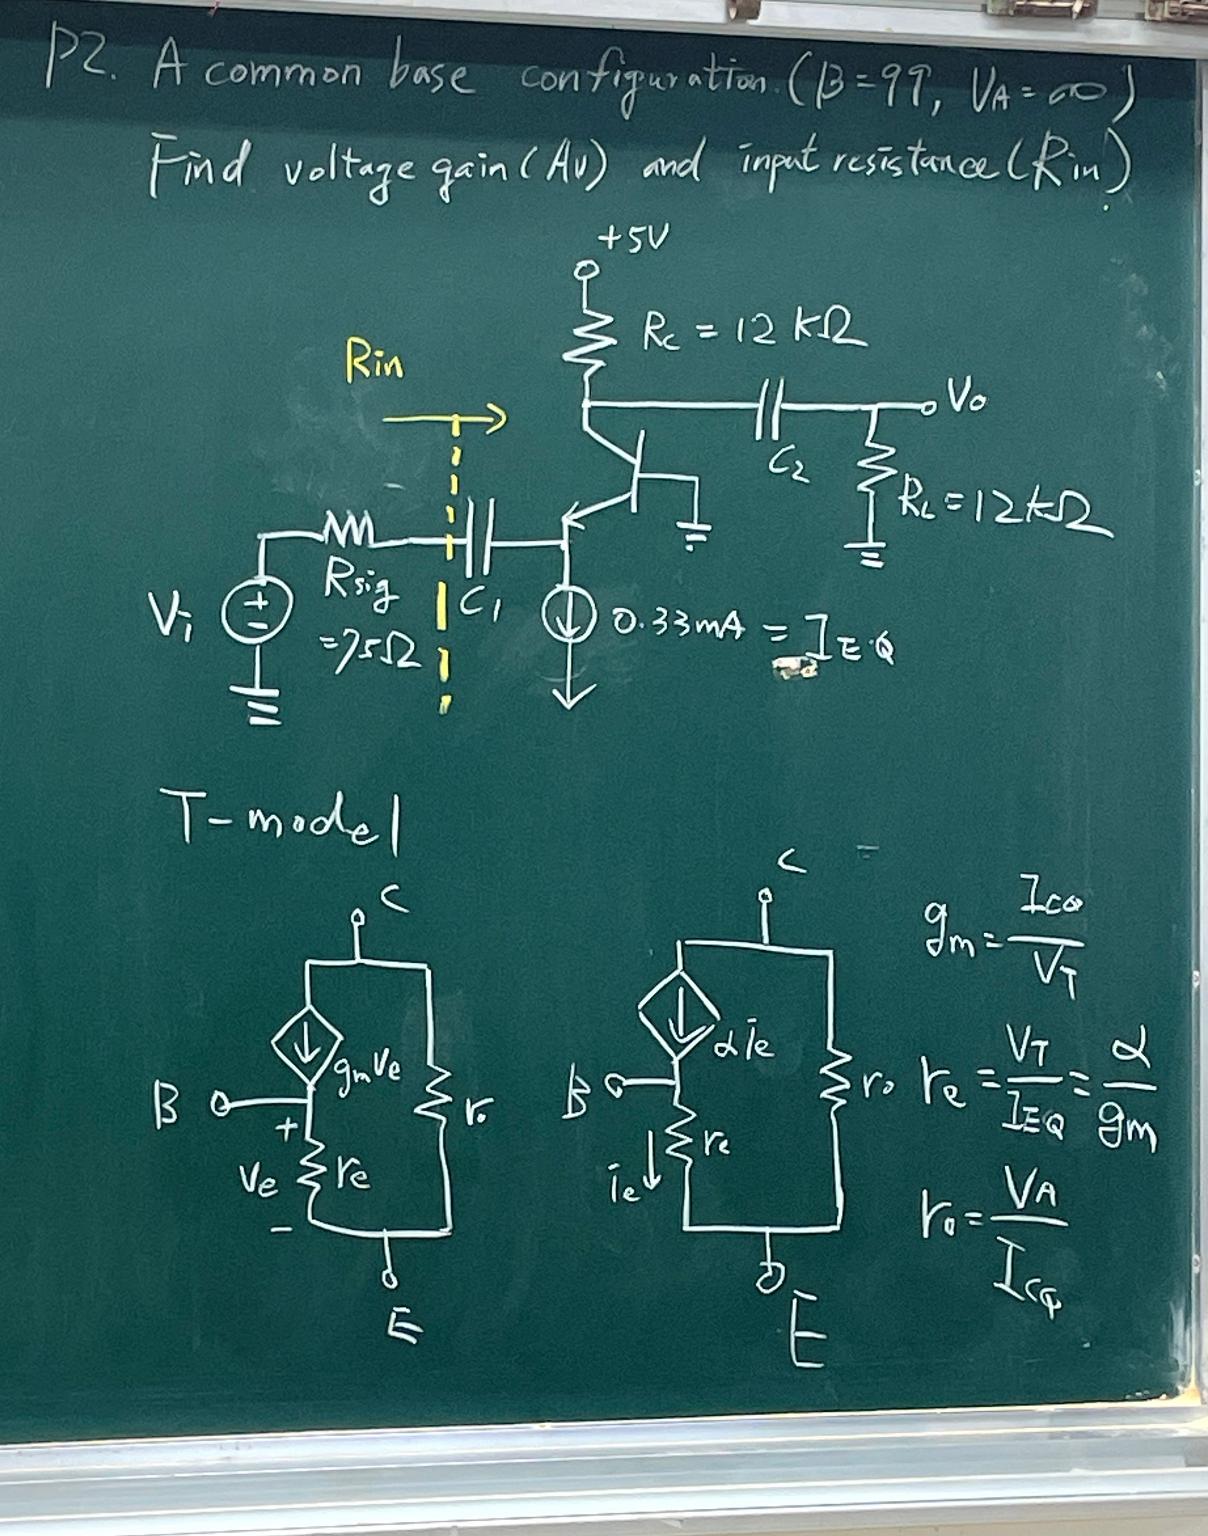 P2. A common base configuration. (β=99, VA=∞)
Find voltage gain (Av) and input resistance (Rin)
+5V
Rc = 12 kΩ
Rin
Vo
C2
RL = 12kΩ
Rsig
=75Ω
C1
Vi
0.33mA = IEQ
T-model
C
gmve
B
+
ve
re
-
ro
E
C
αie
B
re
ie
ro
E
gm = ICQ / VT
re = VT / IEQ = α / gm
ro = VA / ICQ